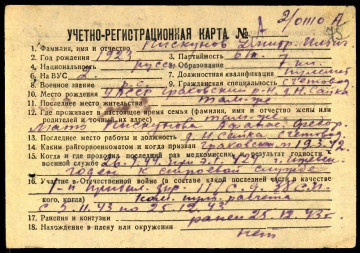 2/0110 А
УЧЕТНО-РЕГИСТРАЦИОННАЯ КАРТА №
1. Фамилия, имя и отчество Пискунов Дмитр.
2. Год рождения 1923 3. Партийность б/п
4. Национальность русс 5. Образование 7 кл.
6. На ВУС 2 7. Должностная квалификация
8. Военное звание 9. Гражданская специальность
10. Место рождения УАССР Граховский р-н, д. Н. Сайка
11. Последнее место жительства там-же
12. Где проживает в настоящее время семья (фамилия, имя и отчество жены или
родителей и точный их адрес) там-же
Мать Пискунова
13. Последнее место работы и должность д. Н. Сайка Счетовод
14. Каким райгорвоенкоматом и когда призван Граховским 19.3.42
15. Когда и где проходил последний раз медкомиссию и результат годности к
военной службе
годен к строевой службе
16. Участие в Отечественной войне (в составе какой последней части в качестве
кого, когда) 111 С.Д.
расчета
с 5.11.43 по 25.12.43
17. Ранения и контузии ранен 25.12.43г.
18. Нахождение в плену или окружении нет